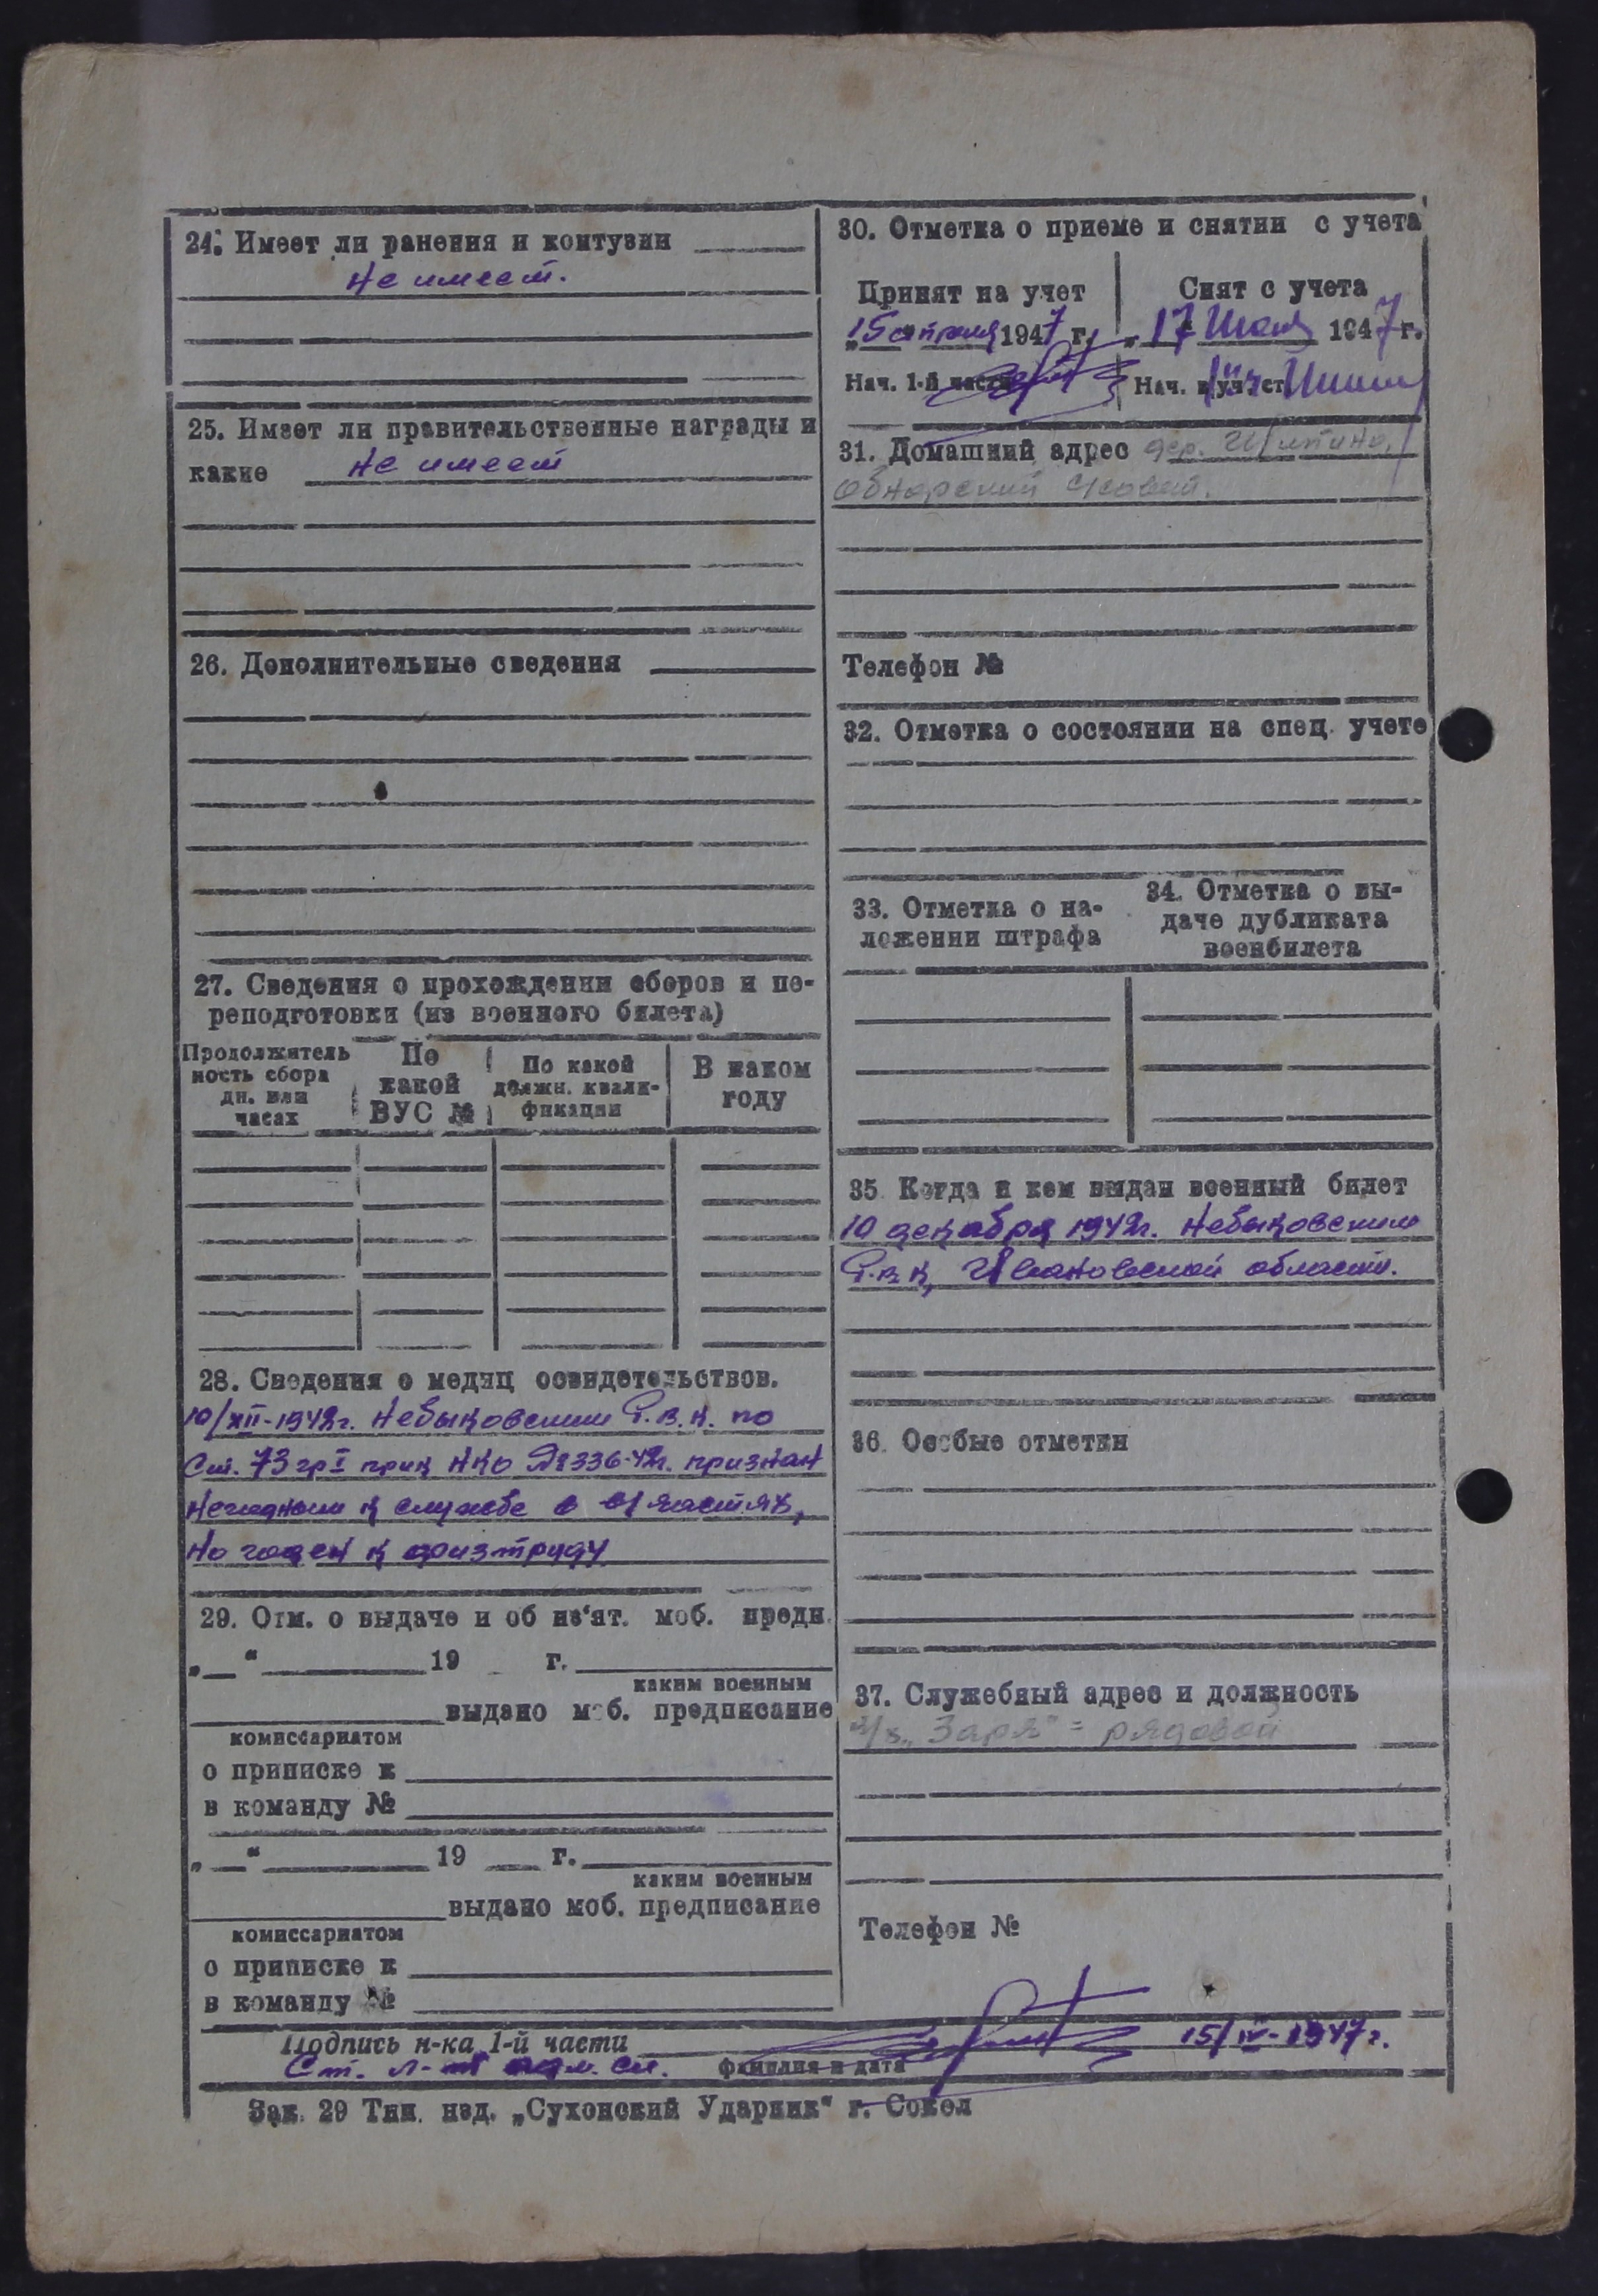 24. Имеет ли ранения и контузии
не имеет.
25. Имеет ли правительственные награды и
какие не имеет
26. Дополнительные сведения
27. Сведения о прохождении сборов и пе-
реподготовки (из военного билета)
Продолжитель
ность сбора
дн. или
часах
По
какой
ВУС №
По какой
должн. квали-
фикации
В каком
году
28. Сведения о медиц освидетельствов.
10/XII-1942г. Небыловским Р.В.К. по
Ст. 73 гр I прик НКО №336-42г. признан
негодным к службе в частях,
но годен к физтруду
29. Отм. о выдаче и об из'ят. моб. предп.
„ “ 19 г.
каким военным
выдано моб. предписание
комиссариатом
о приписке к
в команду №
„ “ 19 г.
каким военным
выдано моб. предписание
комиссариатом
о приписке к
в команду №
30. Отметка о приеме и снятии с учета
Принят на учет
„15 апреля 1947 г.
Нач. 1-й части
Снят с учета
„17 Июля 1947 г.
Нач. уч. ст
31. Домашний адрес дер.
Обнорский с/совет.
Телефон №
32. Отметка о состоянии на спец. учете
33. Отметка о на-
ложении штрафа
34. Отметка о вы-
даче дубликата
военбилета
35. Когда и кем выдан военный билет
10 декабря 1942г. Небыловским
Р.В.К, Ивановской области.
36. Особые отметки
37. Служебный адрес и должность
„Заря" = рядовой
Телефон №
Подпись н-ка 1-й части 15/IV-1947г.
Ст. л-т адм. сл. фамилия и дата
Зак. 29 Тип. изд. „Сухонский Ударник“ г. Сокол